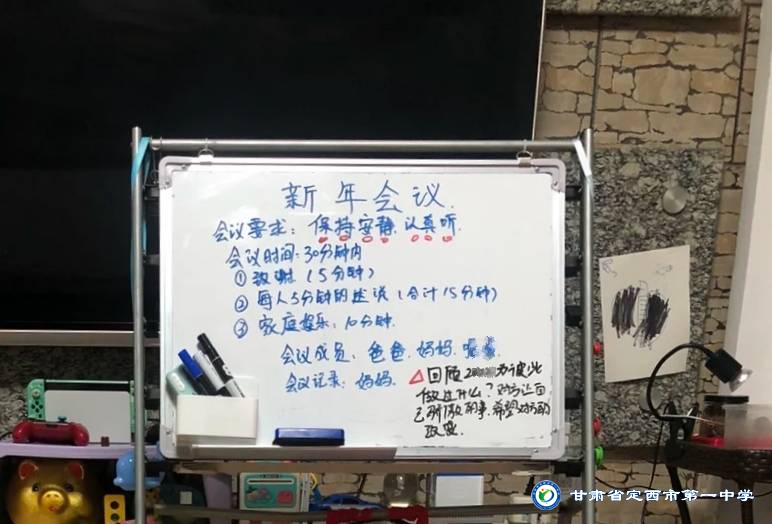 新年会议
会议要求：保持安静、认真听.
会议时间：30分钟内
① 致谢（5分钟）
② 每人5分钟的述说（合计15分钟）
③ 家庭娱乐：10分钟.
会议成员：爸爸、妈妈、
会议记录：妈妈.
△ 回顾 为彼此
做过什么？对方让自
己所做的事.希望对方的
改变.
甘肃省定西市第一中学